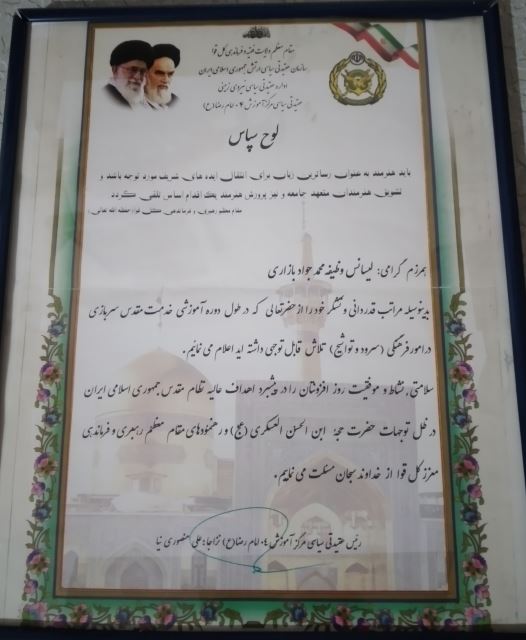 مقام معظم ولایت فقیه و فرماندهی کل قوا
سازمان عقیدتی سیاسی ارتش جمهوری اسلامی ایران
اداره عقیدتی سیاسی نیروی زمینی
عقیدتی سیاسی مرکز آموزش ۰۴ امام رضا (ع)
لوح سپاس
باید هنرمند به عنوان رساترین زبان برای انتقال ایده های شریف مورد توجه باشد و
تشویق هنرمندان متعهد جامعه و نیز پرورش هنرمند یک اقدام اساسی تلقی گردد
مقام معظم رهبری و فرماندهی کل قوا حفظه الله تعالی
همرزم گرامی: لیسانس وظیفه محمد جواد بازاری
بدینوسیله مراتب قدردانی و تشکر خود را از حضرتعالی که در طول دوره آموزشی خدمت مقدس سربازی
در امور فرهنگی (سرود و تواشیح) تلاش قابل توجهی داشته اید اعلام می نمائیم.
سلامتی، نشاط و موفقیت روز افزونتان را در پیشبرد اهداف عالیه نظام مقدس جمهوری اسلامی ایران
در ظل توجهات حضرت حجة ابن الحسن العسکری (عج) و رهنمودهای مقام معظم رهبری و فرماندهی
معزز کل قوا از خداوند سبحان مسئلت می نماییم.
رئیس عقیدتی سیاسی مرکز آموزش ۰۴ امام رضا (ع) نزاجا: علی منصوری نیا